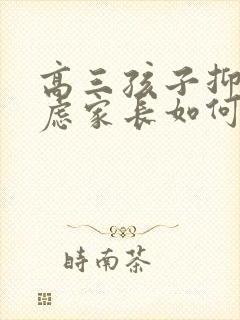 高三孩子抑
虑家长如何
時南茶